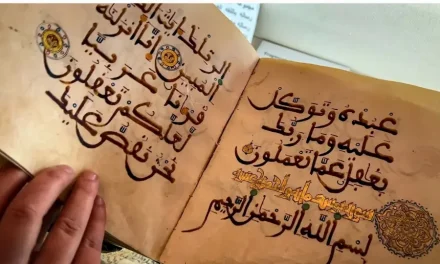 عبده وتوكل
عليه وما ربك
بغفل عما تعملون
سورة يوسف
بسم الله الرحمن الرحيم
الر تلك ايت
المبين انا انزلنه
قرءنا عربيا
لعلكم تعقلون
نحن نقص عليك